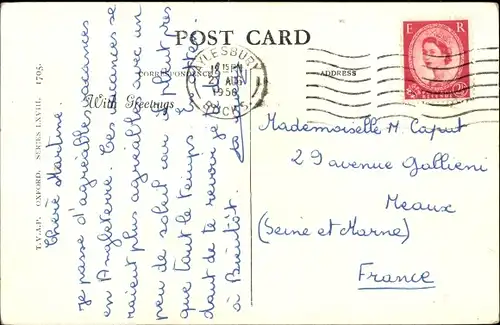 POST CARD
CORRESPONDENCE
ADDRESS
With Greetings
T.V.A.P. OXFORD. SERIES XXVIII. 1705.
AYLESBURY
BUCKS
1958
E R
Chère Martine.
je passe d'agréables vacances
en Angleterre. Ces vacances se
raient plus agréables avec un
peu de soleil car il pleut près
que tout le temps. En atten
dant de te revoir je te dis
à Bientôt.
Mademoiselle M. Caput
29 avenue Gallieni
Meaux
(Seine et Marne)
France